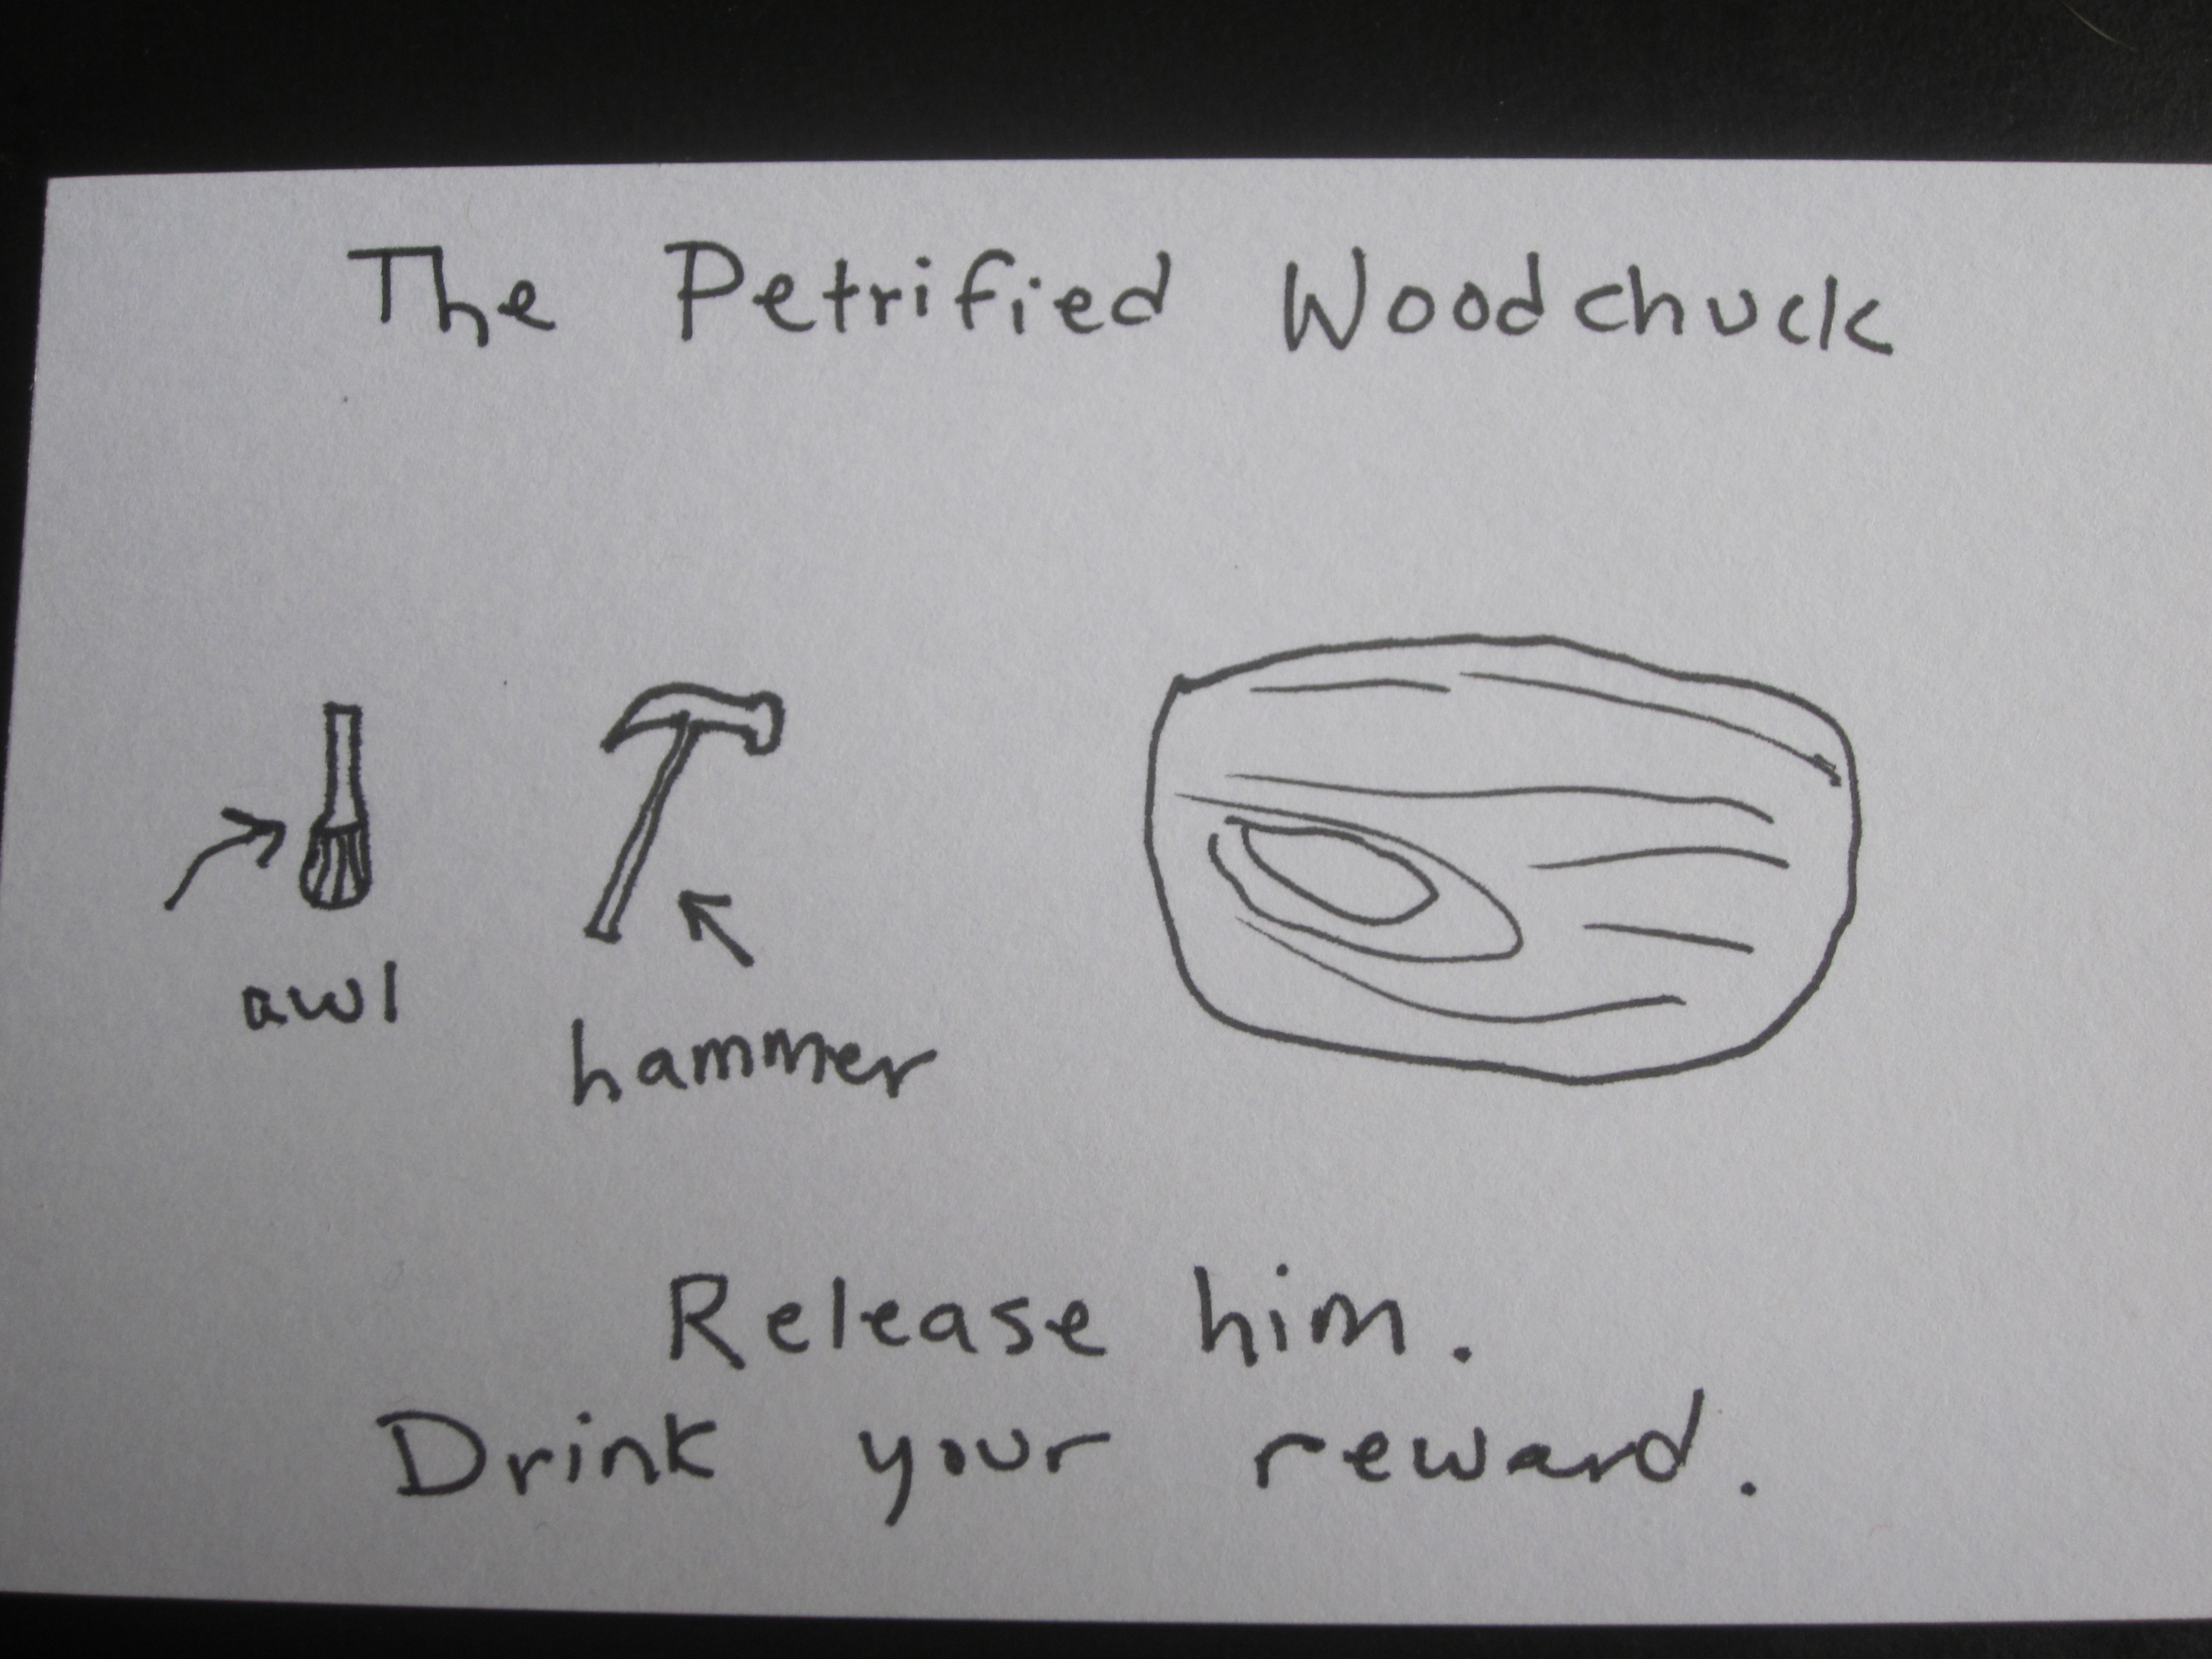 The Petrified Woodchuck
awl
hammer
Release him.
Drink your reward.